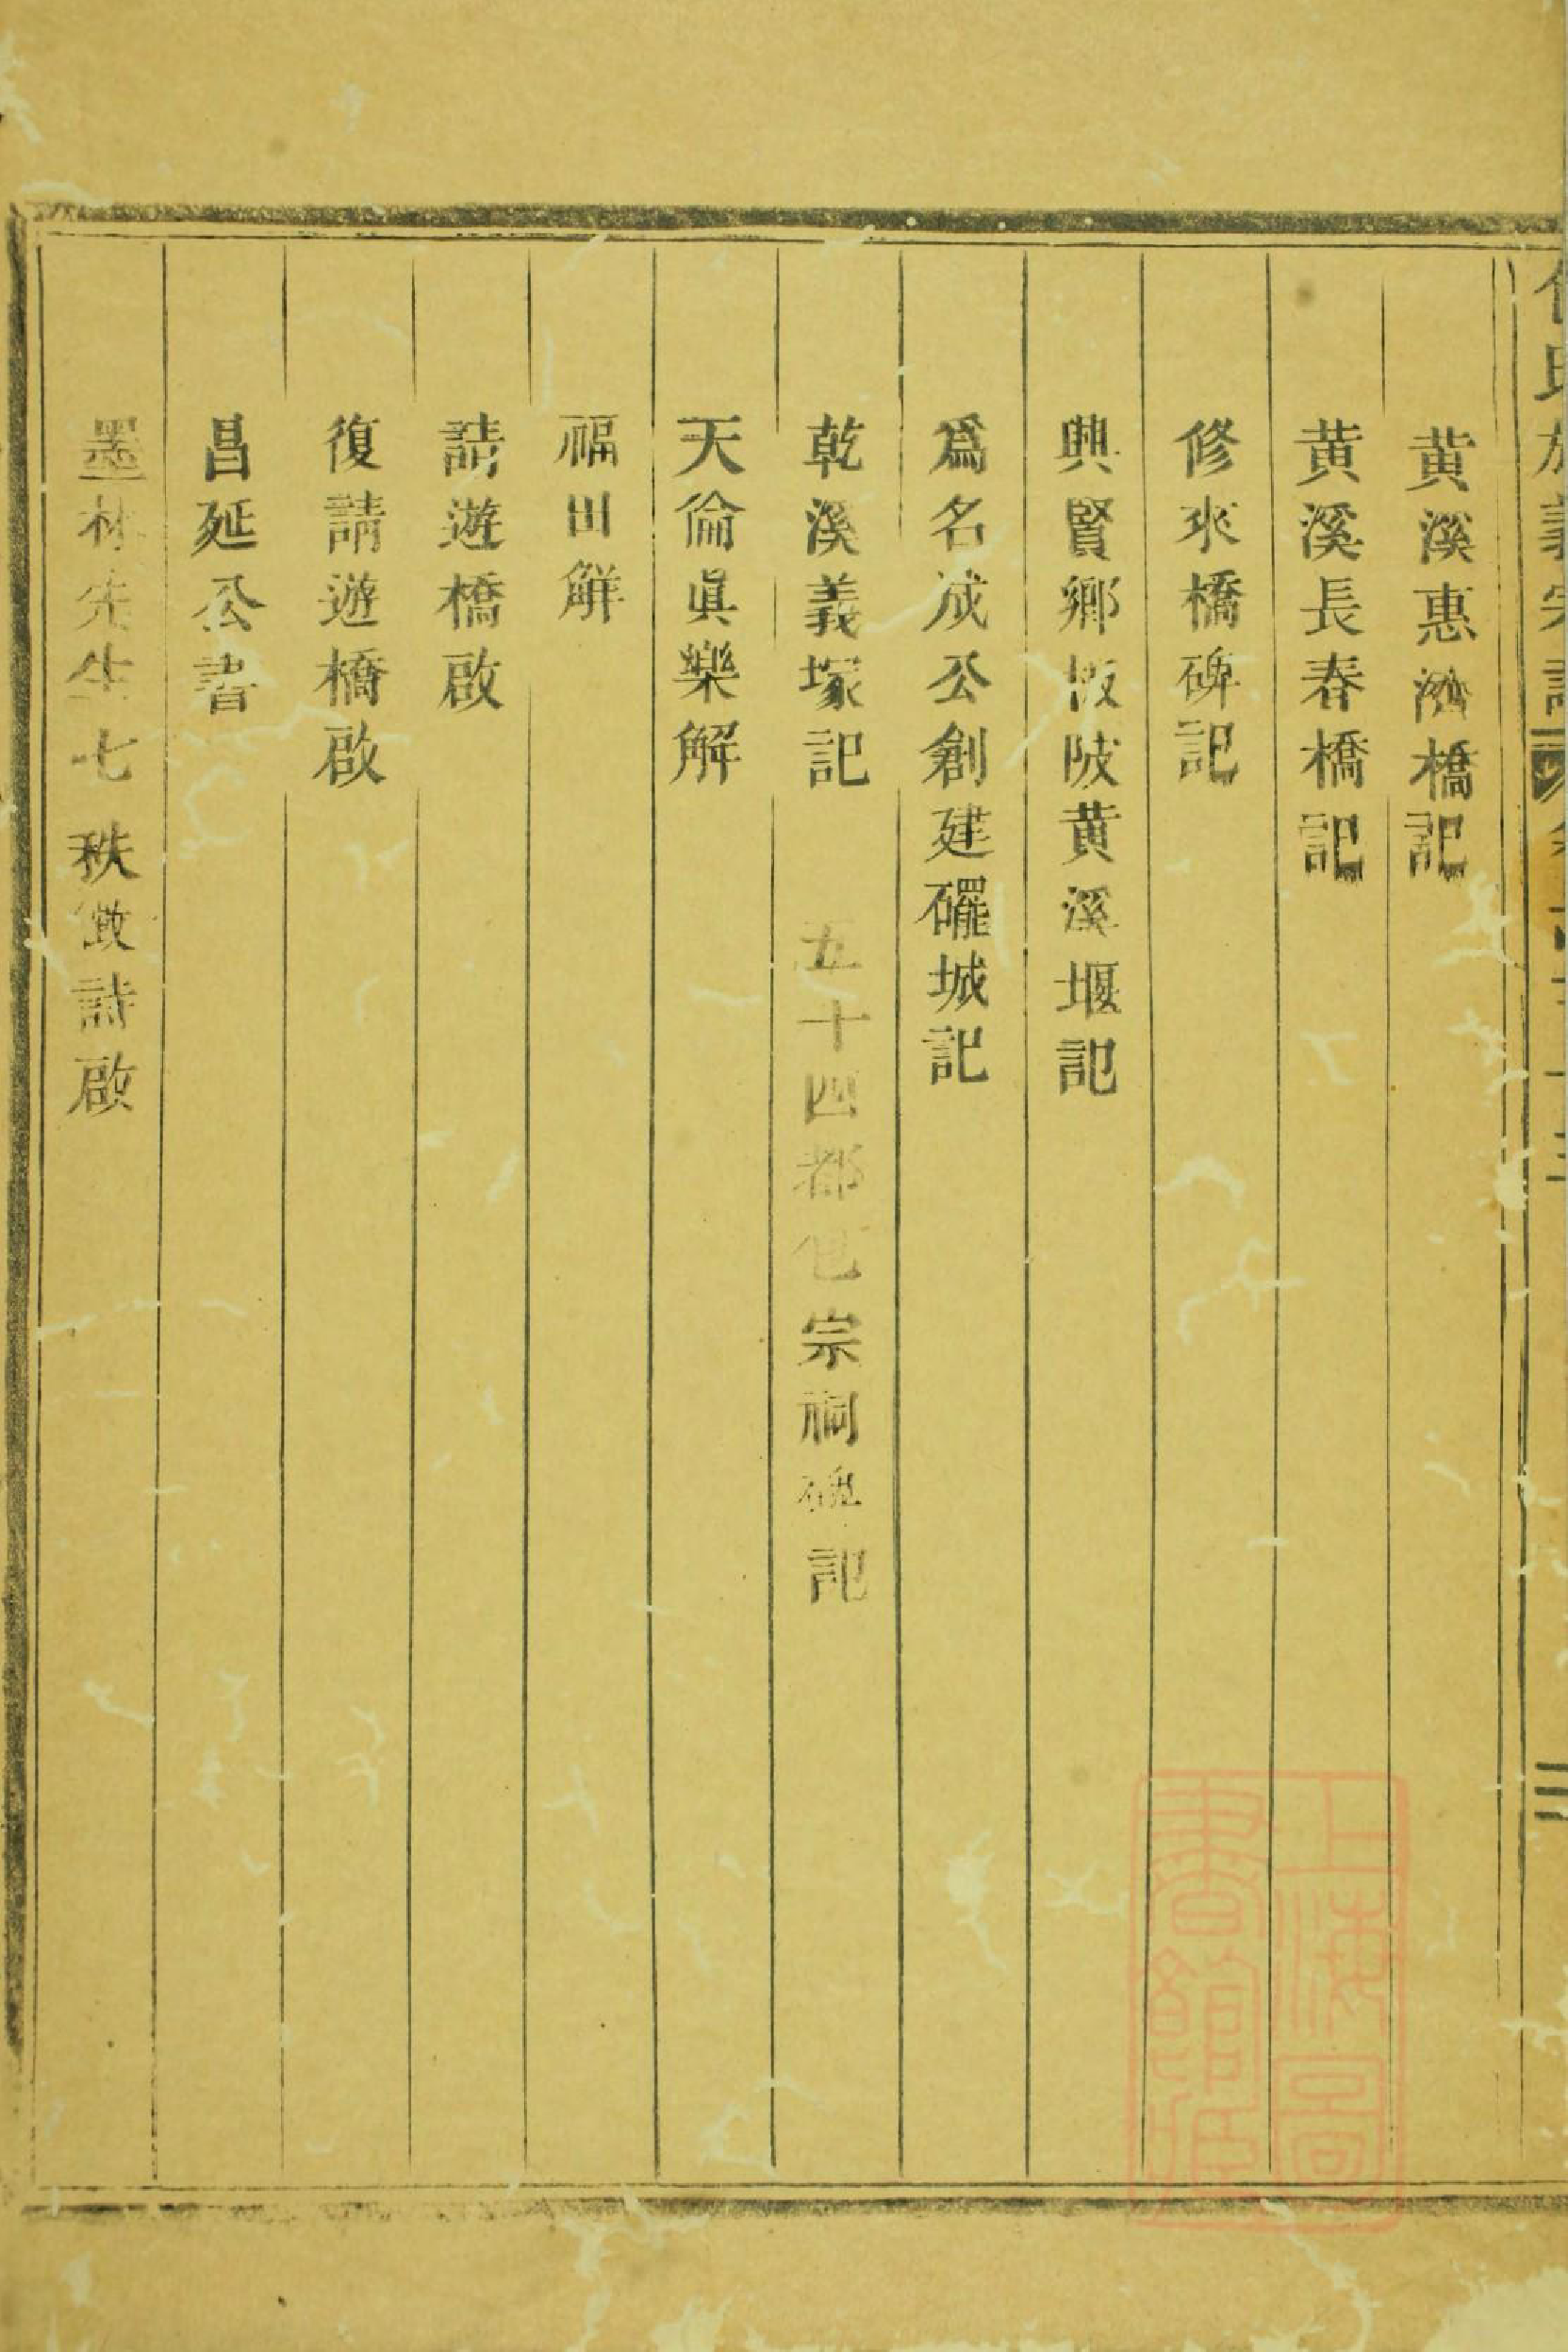 黄溪惠濟橋記
黄溪長春橋記
修來橋碑記
興賢鄉坂陂黄溪堰記
爲名成公創建礶城記
乾溪義塚記 五十四都包宗祠碑記
天倫眞樂解
福田觧
請遊橋啟
復請遊橋啟
昌延公書
墨林先生七秩徴詩啟
上海圖書館藏